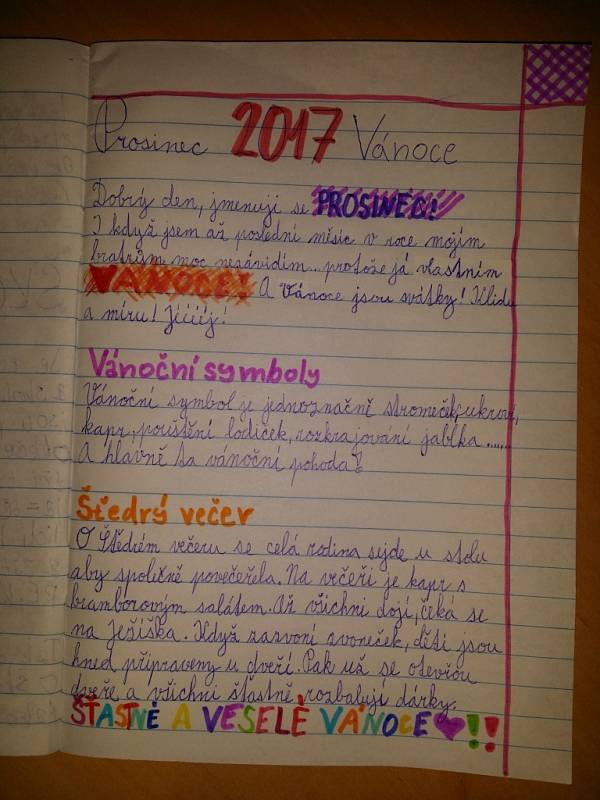 Prosinec 2017 Vánoce
Dobrý den, jmenuji se PROSINEC!
I když jsem až poslední měsíc v roce mojím
bratrům moc nezávidím... protože já vlastním
VÁNOCE! A Vánoce jsou svátky! Klidu
a míru! Jííííj!
Vánoční symboly
Vánoční symbol je jednoznačně stromeček, cukroví,
kapr, pouštění lodiček, rozkrajování jablka......
A hlavně ta vánoční pohoda!
Štědrý večer
O Štědrém večeru se celá rodina sejde u stolu
aby společně povečeřela. Na večeři je kapr s
bramborovým salátem. Až všichni dojí, čeká se
na Ježíška. Když zazvoní zvoneček, děti jsou
hned připraveny u dveří. Pak už se otevřou
dveře a všichni šťastně rozbalují dárky.
ŠŤASTNÉ A VESELÉ VÁNOCE!!